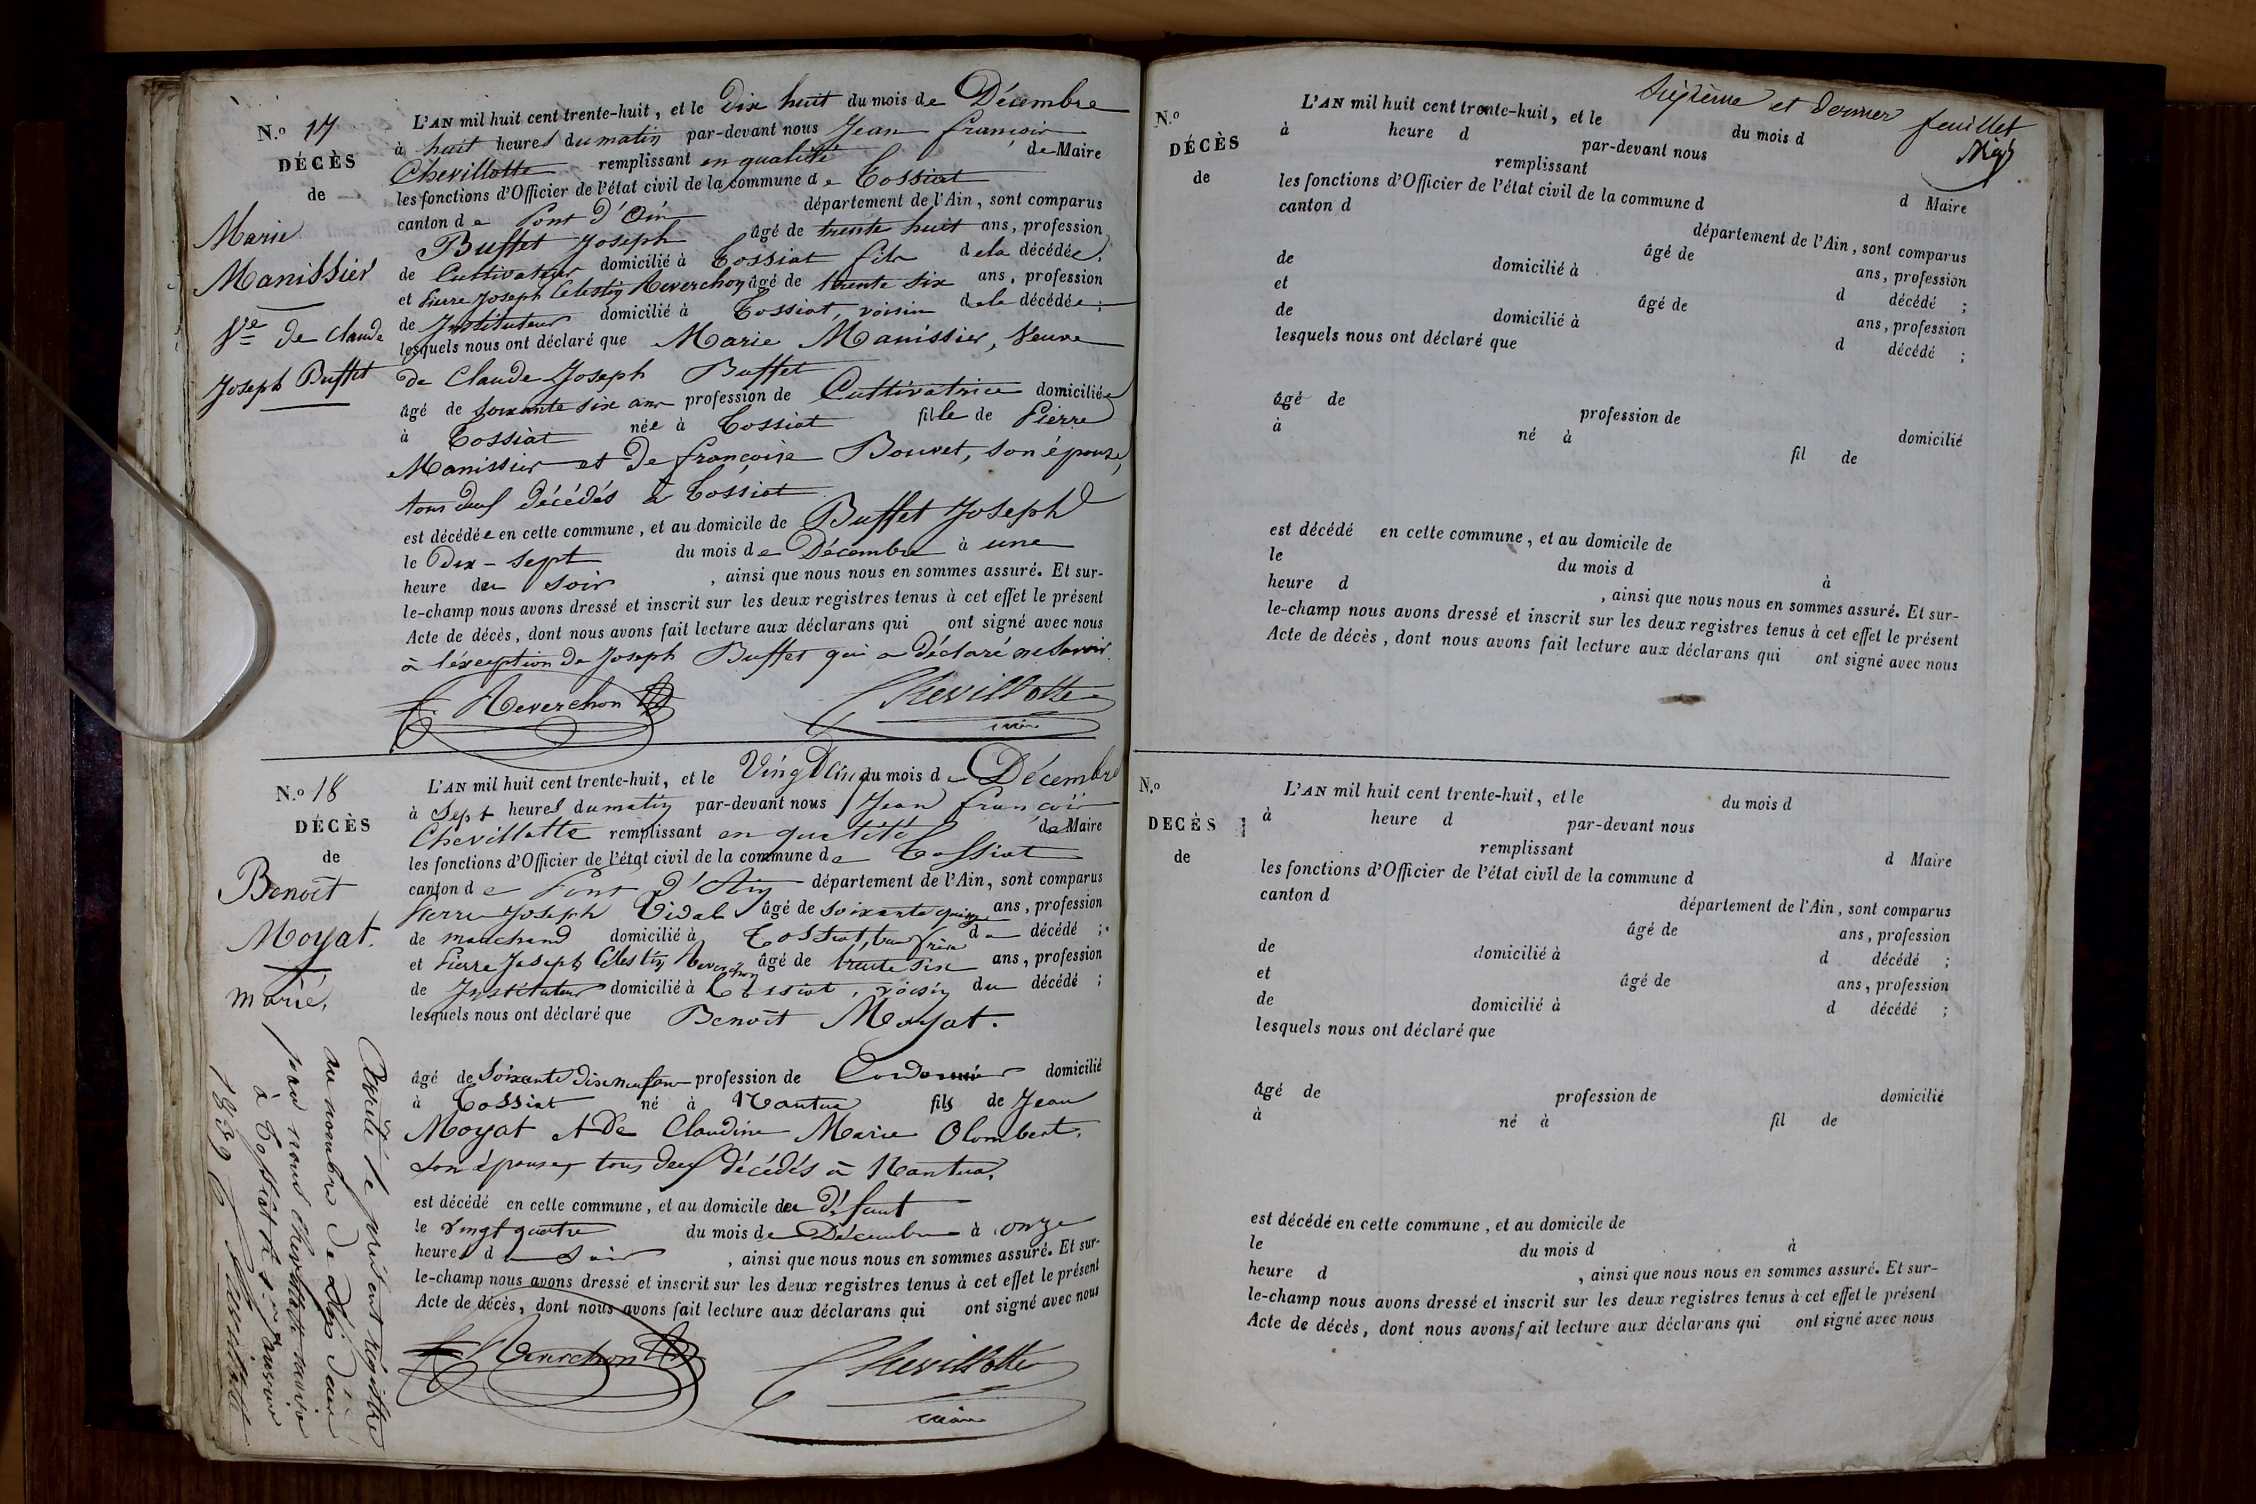 N.º 17
DÉCÈS
de
Marie
Manissier
Ve de Claude
Joseph Buffet
L'AN mil huit cent trente-huit, et le Dix huit du mois de Décembre
à huit heures du matin par-devant nous Jean françois
Chevillotte remplissant en qualité de Maire
les fonctions d'Officier de l'état civil de la commune de Tossiat
canton de Pont d'Ain département de l'Ain, sont comparus
Buffet Joseph âgé de trente huit ans, profession
de Cultivateur domicilié à Tossiat fils de la décédée;
et Pierre Joseph Célestin Reverchon âgé de trente six ans, profession
de Instituteur domicilié à Tossiat, voisin de la décédée;
lesquels nous ont déclaré que Marie Manissier, Veuve
de Claude Joseph Buffet
âgé de soixante six ans profession de Cultivatrice domiciliée
à Tossiat née à Tossiat fille de Pierre
Manissier et de françoise Bouvet, son épouse,
tous deux décédés à Tossiat
est décédée en cette commune, et au domicile de Buffet Joseph
le Dix-sept du mois de Décembre à une
heure du soir, ainsi que nous nous en sommes assuré. Et sur-
le-champ nous avons dressé et inscrit sur les deux registres tenus à cet effet le présent
Acte de décès, dont nous avons fait lecture aux déclarans qui ont signé avec nous
à l'éxception de Joseph Buffet qui a déclaré ne savoir.
Reverchon Chevillotte
maire
N.º 18
DÉCÈS
de
Benoît
Moyat.
marié,
L'AN mil huit cent trente-huit, et le Vingt cinq du mois de Décembre
à Sept heures du matin par-devant nous Jean françois
Chevillotte remplissant en qualité de Maire
les fonctions d'Officier de l'état civil de la commune de Tossiat
canton de Pont d'Ain département de l'Ain, sont comparus
Pierre Joseph Vidal âgé de soixante quinze ans, profession
de marchand domicilié à Tossiat, beau frère du décédé;
et Pierre Joseph Célestin Reverchon âgé de trente six ans, profession
de Instituteur domicilié à Tossiat, voisin du décédé;
lesquels nous ont déclaré que Benoît Moyat.
âgé de Soixante Dix neuf ans profession de Cordonnier domicilié
à Tossiat né à Nantua fils de Jean
Moyat et De Claudine Marie Olombert,
son épouse, tous deux décédés à Nantua,
est décédé en cette commune, et au domicile du Défunt
le vingt quatre du mois de Décembre à onze
heures du Soir, ainsi que nous nous en sommes assuré. Et sur-
le-champ nous avons dressé et inscrit sur les deux registres tenus à cet effet le présent
Acte de décès, dont nous avons fait lecture aux déclarans qui ont signé avec nous
Reverchon Chevillotte
maire
Arrêté le présent régistre
au nombre de
par nous Chevillotte maire
à Tossiat le 1er Janvier
1839 Chevillotte
et dernier feuillet
N.º
DÉCÈS
de
L'AN mil huit cent trente-huit, et le du mois d
à heure d par-devant nous
remplissant d Maire
les fonctions d'Officier de l'état civil de la commune d
canton d département de l'Ain, sont comparus
âgé de ans, profession
de domicilié à d décédé;
et âgé de ans, profession
de domicilié à d décédé;
lesquels nous ont déclaré que
âgé de profession de domicilié
à né à fil de
est décédé en cette commune, et au domicile de
le du mois d à
heure d, ainsi que nous nous en sommes assuré. Et sur-
le-champ nous avons dressé et inscrit sur les deux registres tenus à cet effet le présent
Acte de décès, dont nous avons fait lecture aux déclarans qui ont signé avec nous
N.º
DECÈS
de
L'AN mil huit cent trente-huit, et le du mois d
à heure d par-devant nous
remplissant d Maire
les fonctions d'Officier de l'état civil de la commune d
canton d département de l'Ain, sont comparus
âgé de ans, profession
de domicilié à d décédé;
et âgé de ans, profession
de domicilié à d décédé;
lesquels nous ont déclaré que
âgé de profession de domicilié
à né à fil de
est décédé en cette commune, et au domicile de
le du mois d à
heure d, ainsi que nous nous en sommes assuré. Et sur-
le-champ nous avons dressé et inscrit sur les deux registres tenus à cet effet le présent
Acte de décès, dont nous avons fait lecture aux déclarans qui ont signé avec nous